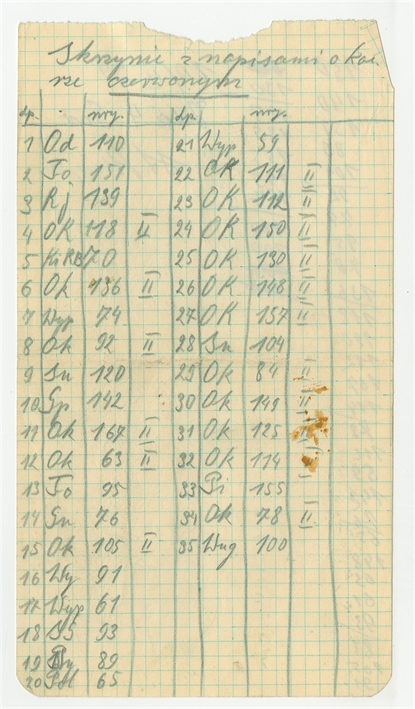 Skrzynie z napisami o kolo-
rze czerwonym
lp. nry. lp. nry.
1 Od 110
2 To 151
3 Rj 139
4 OK 118 II
5 KiRB 70
6 Ok 136 II
7 Wyp 74
8 Ok 92 II
9 Sn 120
10 Gp 142
11 Ok 167 II
12 Ok 63 II
13 To 95
14 Sn 76
15 Ok 105 II
16 Wy 91
17 Wyp 61
18 93
19 89
20 Pol 65
21 Wyp 59
22 OK 111 II
23 OK 112 II
24 OK 150 II
25 OK 130 II
26 OK 148 II
27 OK 157 II
28 Sn 104
29 Ok 84 II
30 Ok 149 II
31 Ok 125
32 Ok 114
33 Pi 155
34 Ok 78 II
35 Wug 100